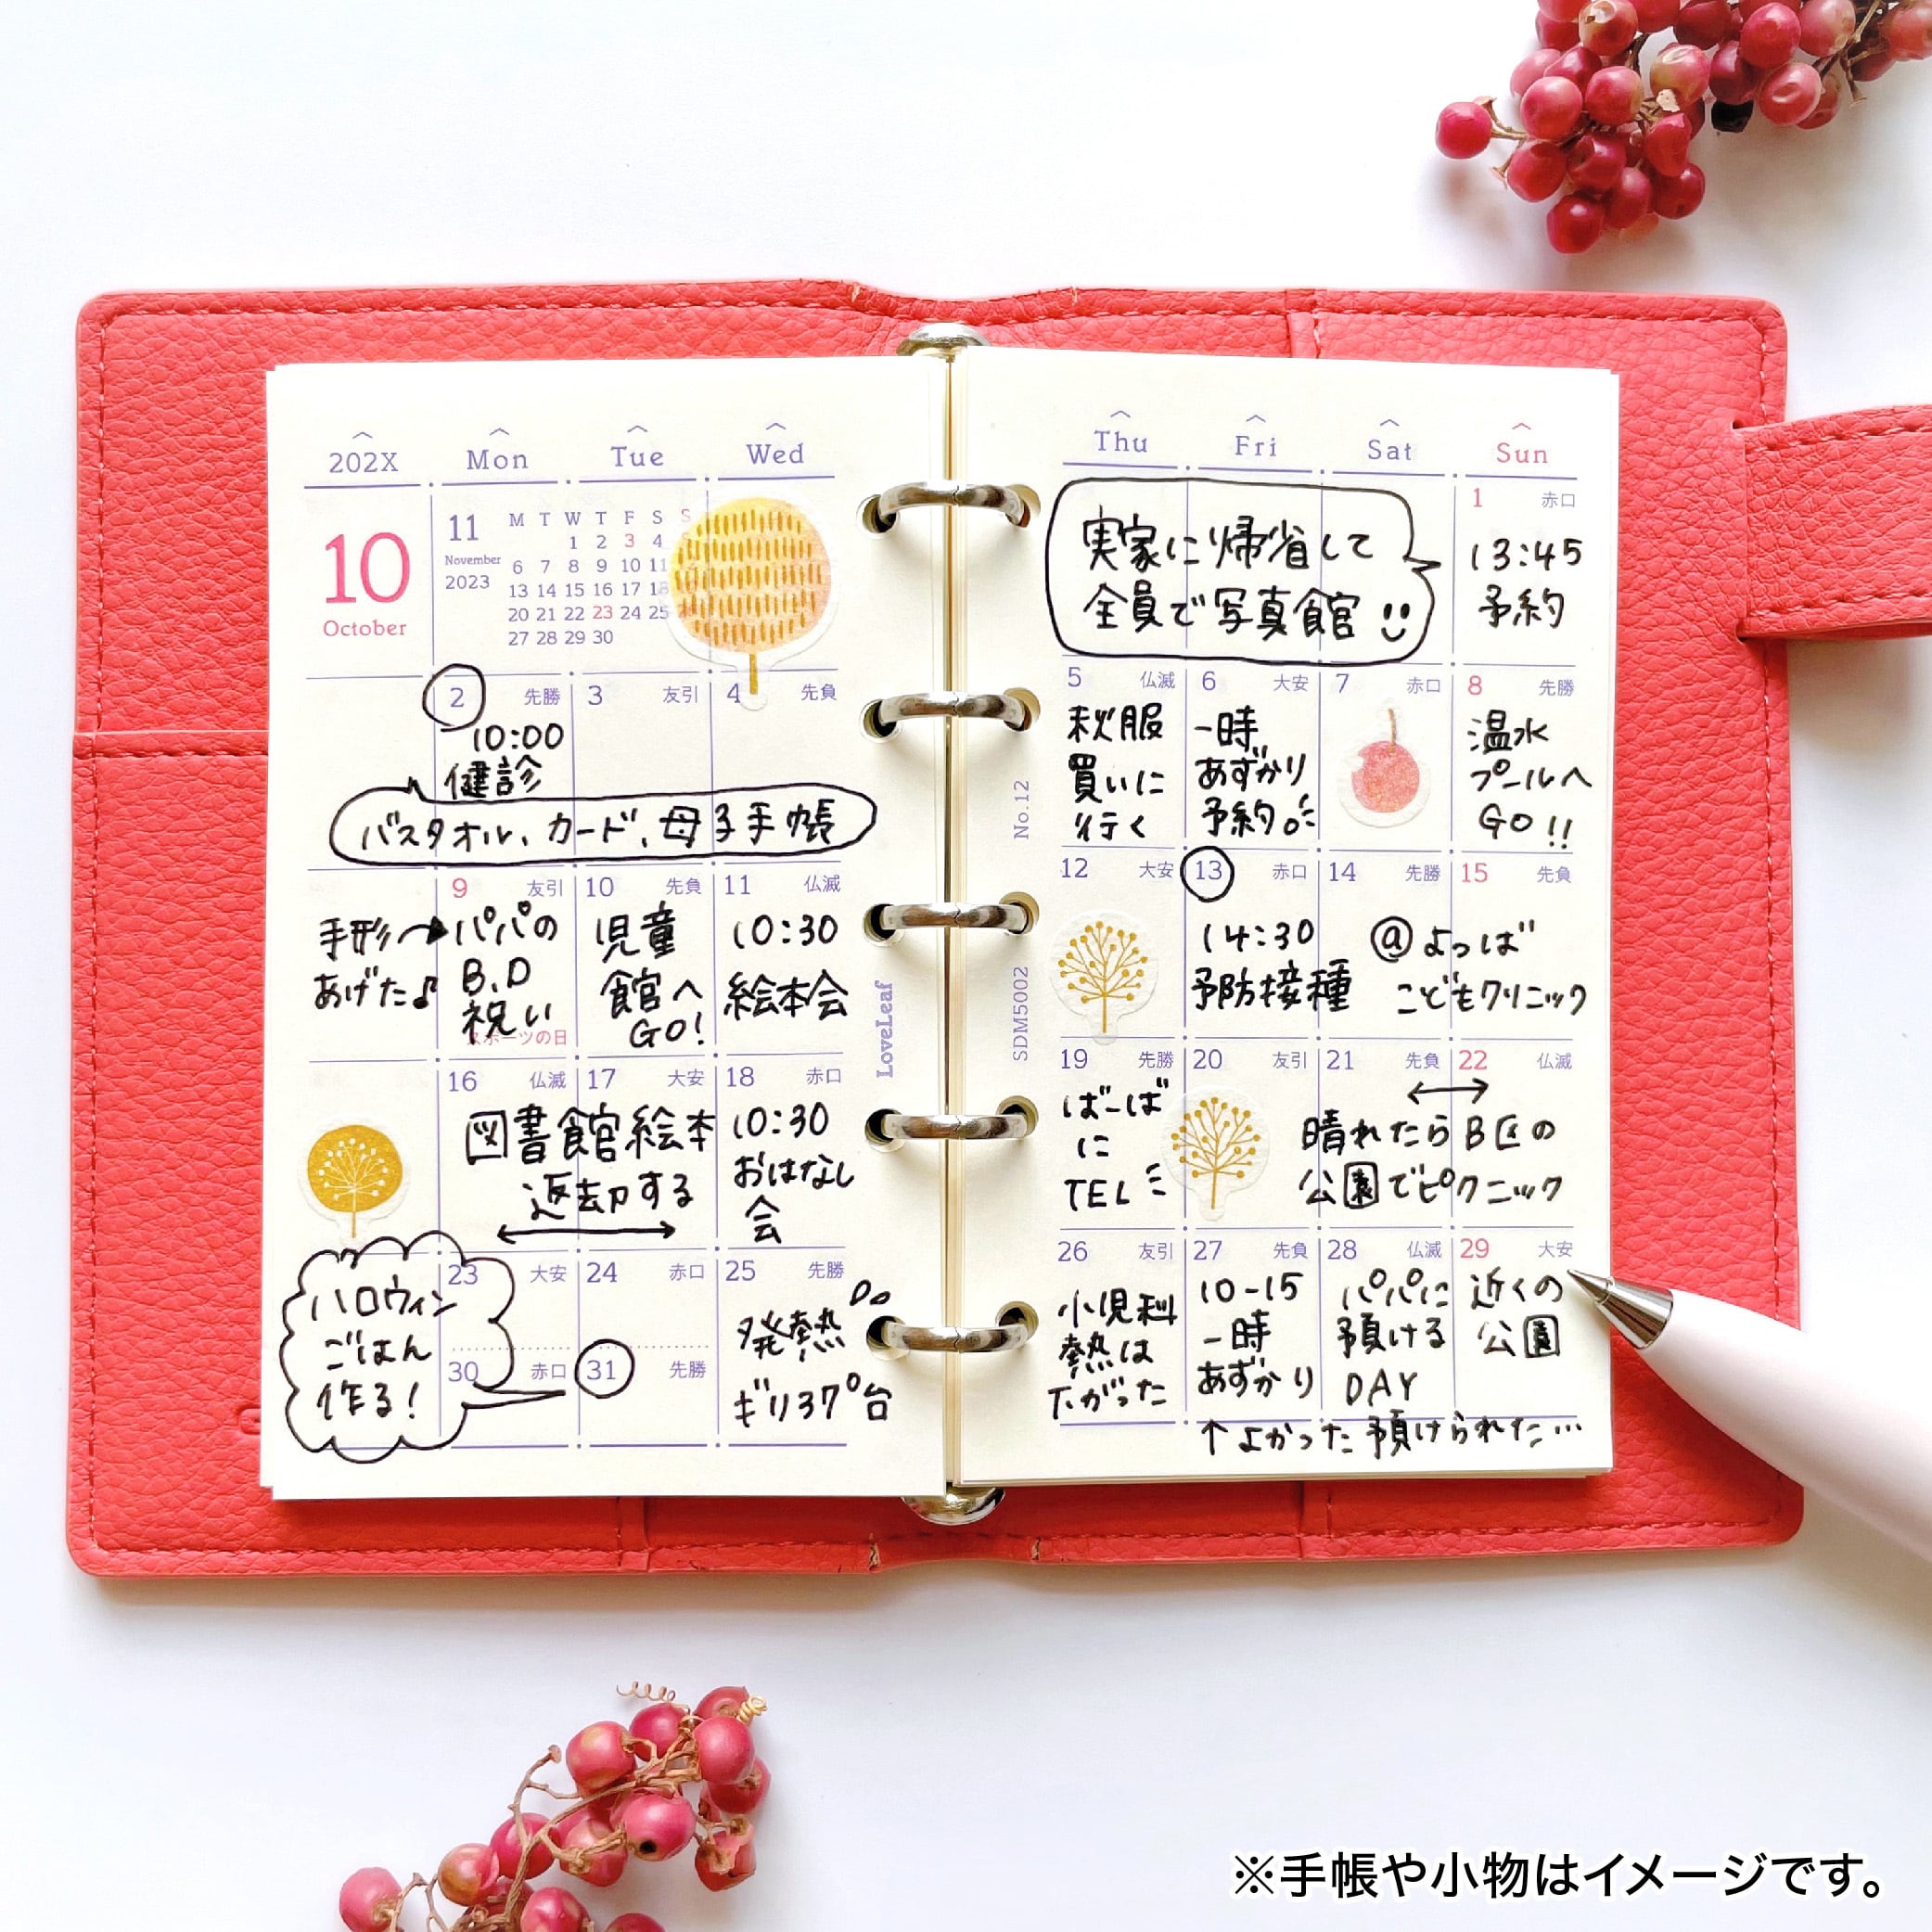 202X Mon Tue Wed
10
October
11
November
2023
M T W T F S S
1 2 3 4
6 7 8 9 10 11
13 14 15 16 17 18
20 21 22 23 24 25
27 28 29 30
2 先勝 3 友引 4 先負
10:00
健診
バスタオル、カード、母子手帳
9 友引 10 先負 11 仏滅
手形→
あげた♪
パパの
B.D
祝い
スポーツの日
児童
館へ
GO!
10:30
絵本会
16 仏滅 17 大安 18 赤口
図書館絵本
返却する
10:30
おはなし
会
23 大安 24 赤口 25 先勝
ハロウィン
ごはん
作る!
30 赤口 31 先勝
発熱
ギリ37°台
LoveLeaf
Thu Fri Sat Sun
1 赤口
実家に帰省して
全員で写真館
13:45
予約
5 仏滅 6 大安 7 赤口 8 先勝
秋服
買いに
行く
一時
あずかり
予約
温水
プールへ
GO!!
No.12
12 大安 13 赤口 14 先勝 15 先負
14:30
予防接種
@よつば
こどもクリニック
SDM5002
19 先勝 20 友引 21 先負 22 仏滅
ばーば
に
TEL
晴れたらB区の
公園でピクニック
26 友引 27 先負 28 仏滅 29 大安
小児科
熱は
下がった
10-15
一時
あずかり
パパに
預ける
DAY
近くの
公園
↑よかった預けられた…
※手帳や小物はイメージです。